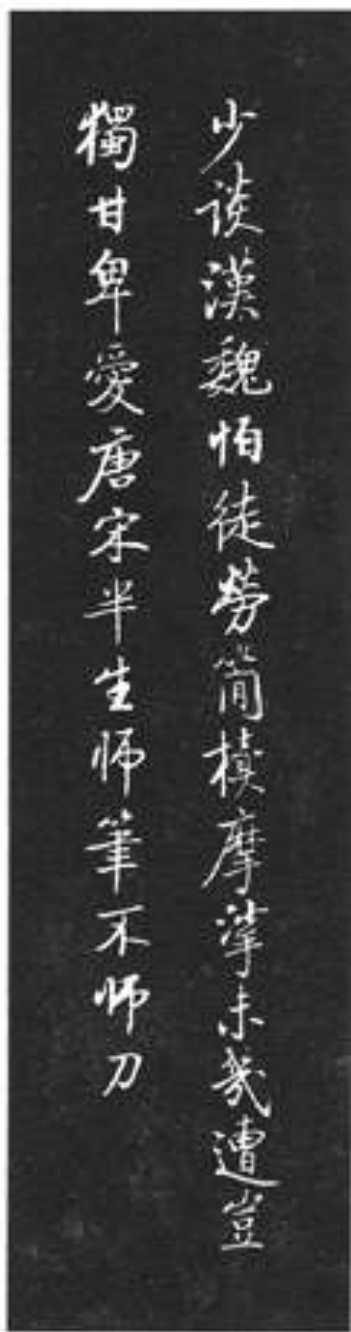 少談漢魏怕徒勞簡櫝摩挲未幾遭豈
獨甘卑愛唐宋半生师筆不师刀